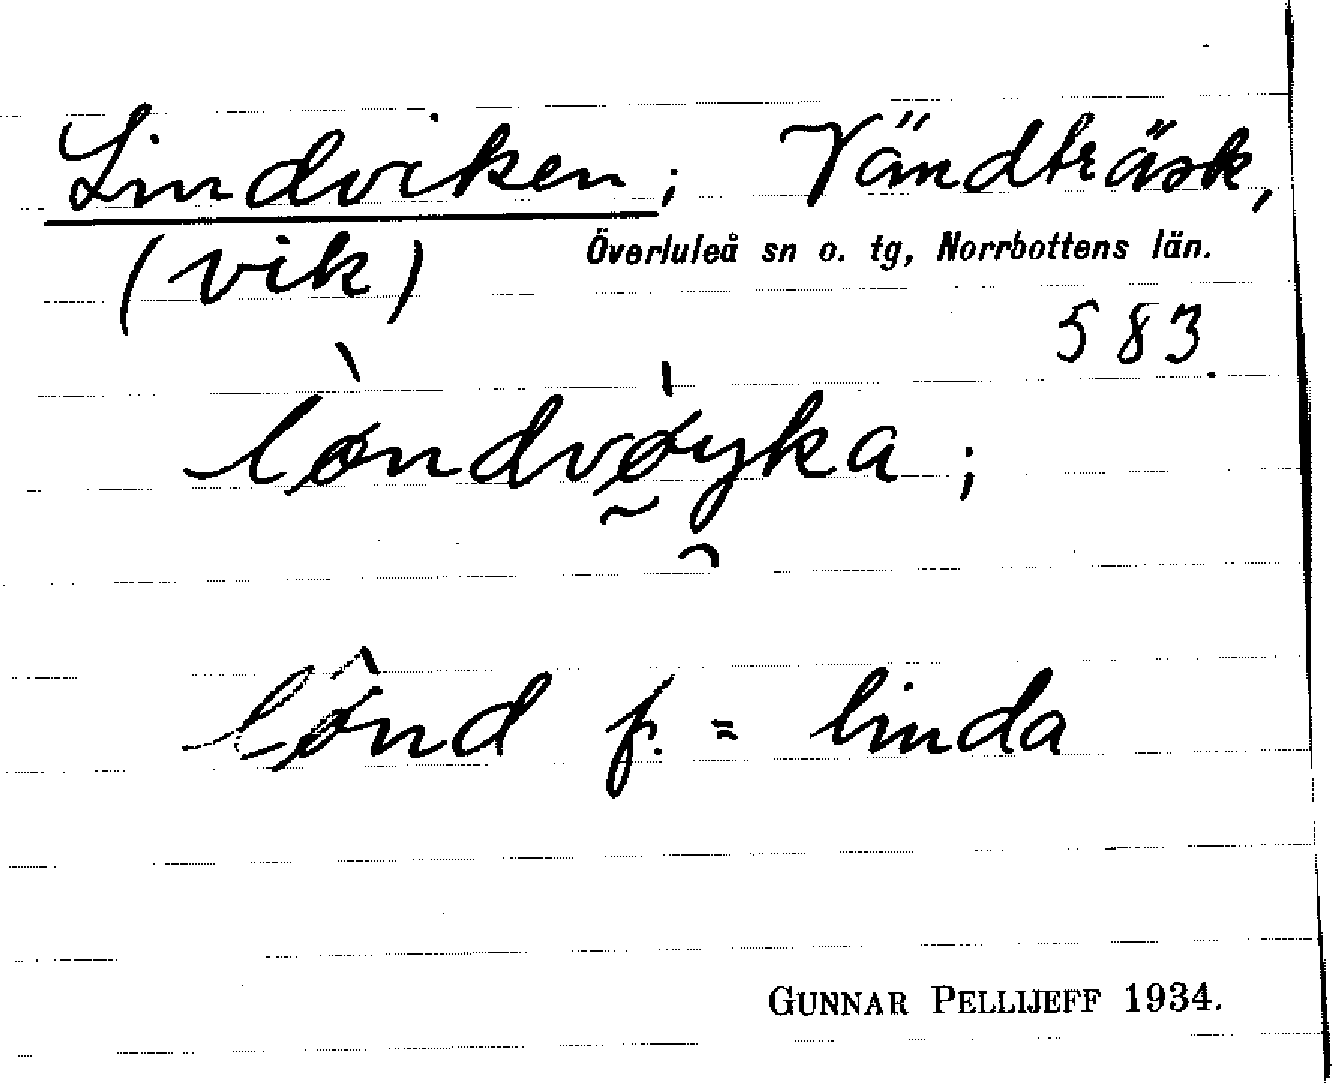 Lindviken; Vändträsk,
(vik) Överluleå sn o. tg, Norrbottens län.
583.
lø̀ndvø̰̍y̑ka;
lø̂nd f. = linda
GUNNAR PELLIJEFF 1934.